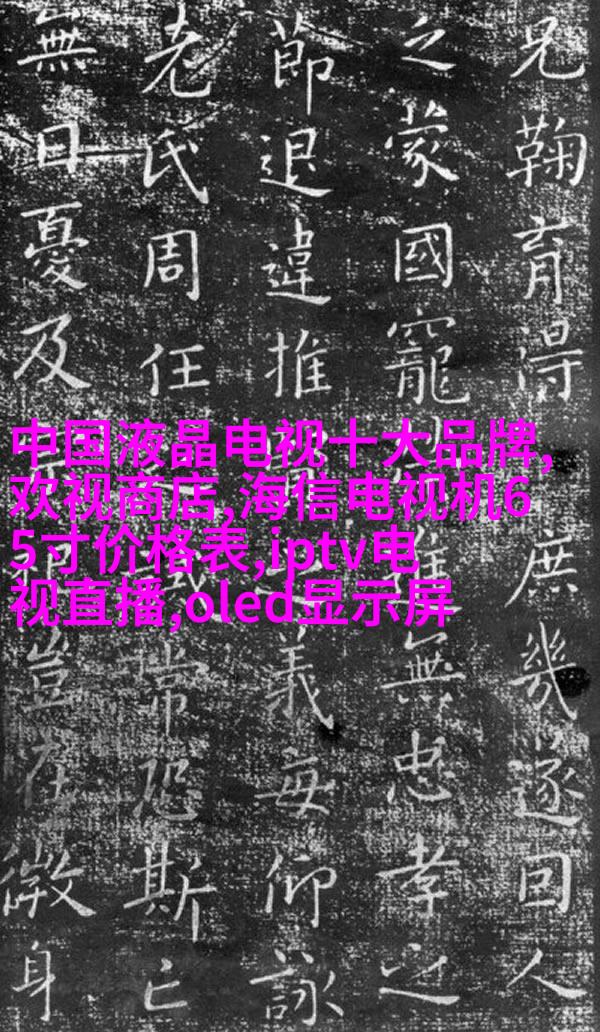 兄鞠育得庶幾遂回人
之蒙國寵進無忠孝之
節退違推義每仰詠
老氏周任誡常恐斯亡
無日憂及豈在微身
中国液晶电视十大品牌,
欢视商店,海信电视机6
5寸价格表,iptv电
视直播,oled显示屏